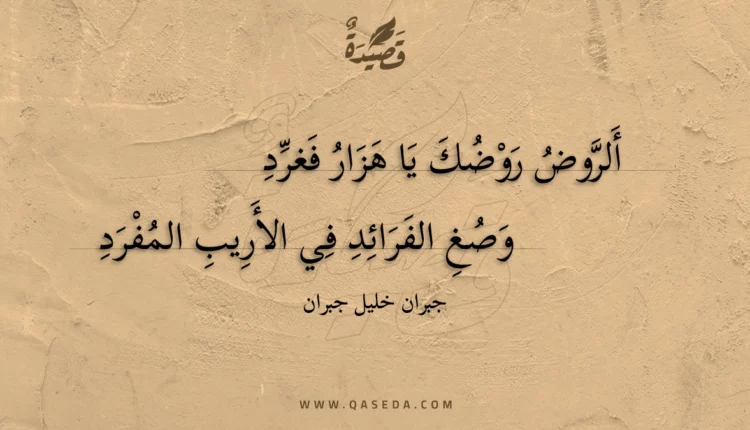 قَصِيدَةٌ
أَلرَّوضُ رَوْضُكَ يَا هَزَارُ فَغرِّدِ
وَصُغِ الفَرَائِدِ فِي الأَرِيبِ المُفْرَدِ
جبران خليل جبران
WWW.QASEDA.COM